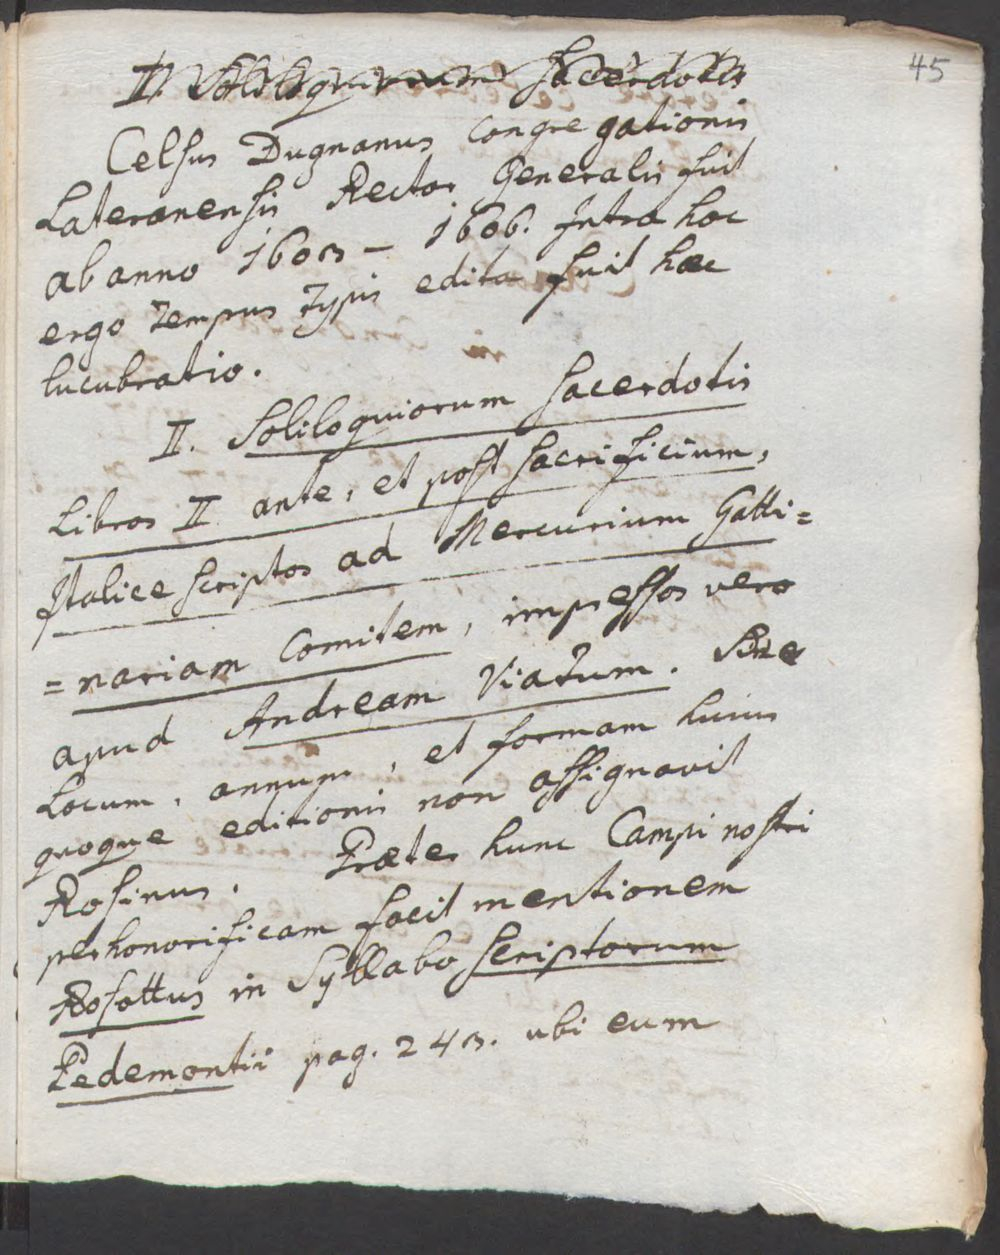 45
II. Soliloquiorum Sacerdotis
Celsus Dugnanus Congregationis
Lateranensis Rector Generalis fuit
ab anno 1603 – 1606. Intra hoc
ergo tempus typis edita fuit hæc
lucubratio.
II. Soliloquiorum Sacerdotis
Libros II ante, et post sacrificium,
Italice scriptos ad Mercurium Gatti=
=nariam Comitem, impressos vero
apud Andream Viatum. Sed
Locum, annum, et formam huius
quoque editionis non assignavit
Rosinus. Præter hunc Campi nostri
perhonorificam facit mentionem
Rosottus in Syllabo Scriptorum
Pedemontii pag. 243. ubi eum